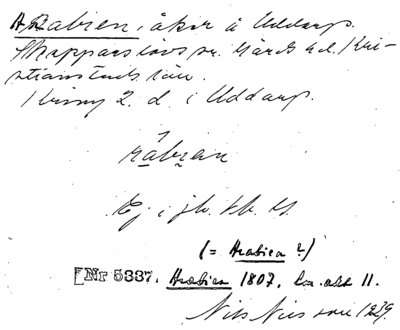 Arabien, åker å Uddarp.
Skepparslövs sn. Gärds hd. Kri-
stianstads län.
Kinny 2. d. i Uddarp.
rabian
Ej i jb. 
(= Arabien ?)
[Nr 5337. Arabien 1807, Lm. akt 11.
Nils Nilsson 1929.